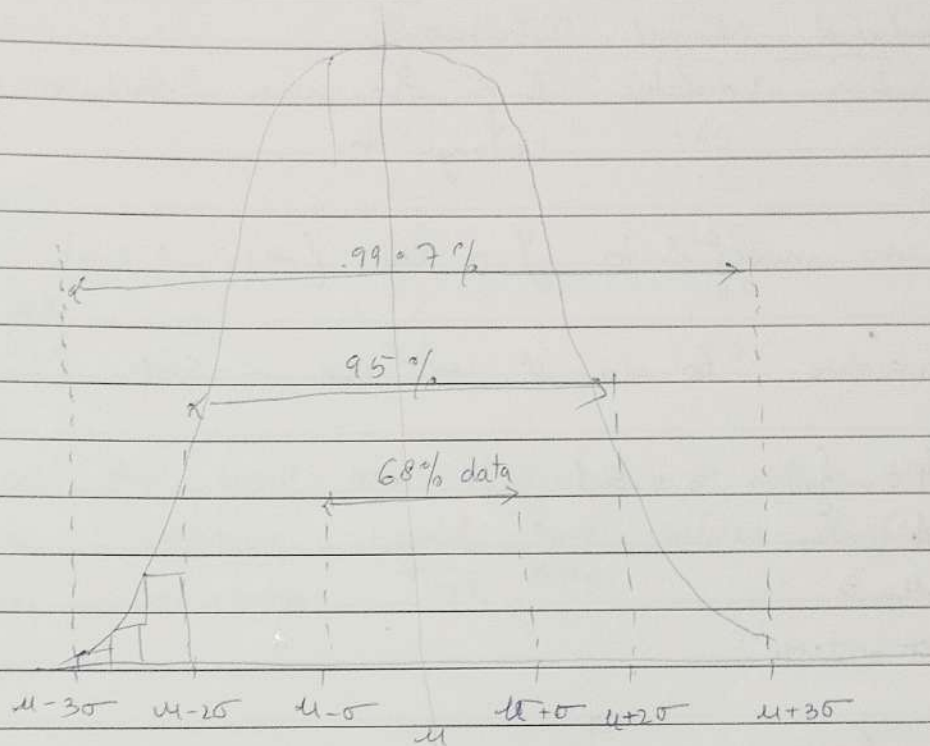 99.7%
95%
68% data
μ-3σ μ-2σ μ-σ μ+σ μ+2σ μ+3σ
μ